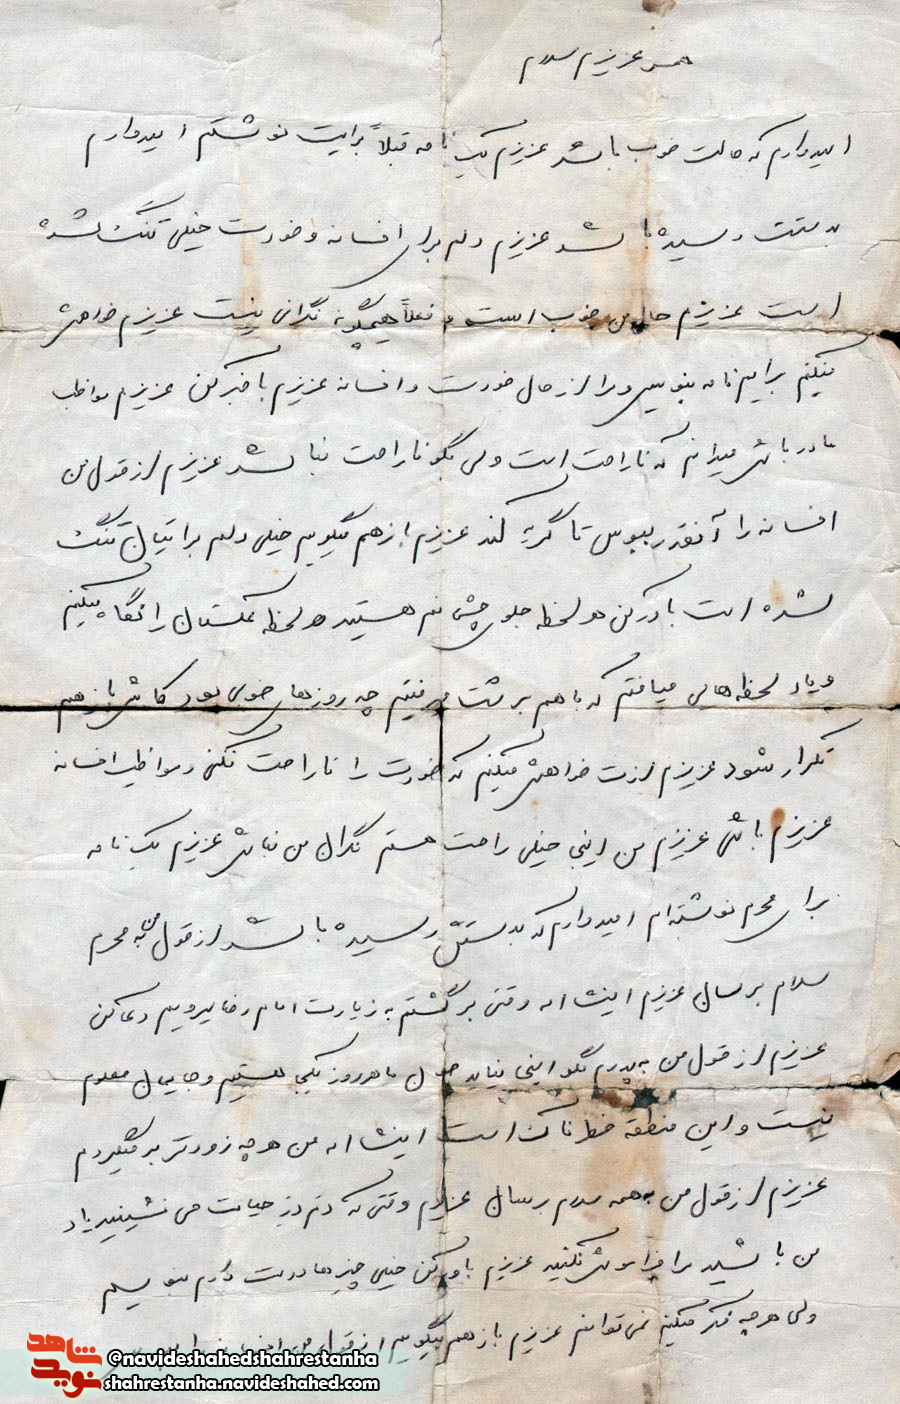 همسر عزیزم سلام
امیدوارم که حالت خوب باشد عزیزم یک نامه قبلاً برایت نوشتم امیدوارم
بدستت رسیده باشد عزیزم دلم برای افسانه و خودت خیلی تنگ شده
است عزیزم حال من خوب است و فعلاً هیچگونه نگرانی نیست عزیزم خواهش
میکنم برایم نامه بنویس و مرا از حال خودت و افسانه عزیزم با خبر کن عزیزم مواظب
مادر باش میدانم که ناراحت است ولی بگو ناراحت نباشد عزیزم از قول من
افسانه را آنقدر ببوس تا گریه کند عزیزم باز هم میگویم خیلی دلم برایتان تنگ
شده است باور کن هر لحظه جلوی چشمانم هستید هر لحظه عکستان را نگاه میکنم
و یاد لحظه هایی میافتم که با هم به رشت میرفتیم چه روزهای خوبی بود کاش باز هم
تکرار شود عزیزم ازت خواهش میکنم که خودت را ناراحت نکنی و مواظب افسانه
عزیزم باش عزیزم من اینجا خیلی راحت هستم نگران من نباش عزیزم یک نامه
برای محرم نوشته ام امیدوارم که بدستش رسیده باشد از قول من به محرم
سلام برسان عزیزم اینشااله وقتی برگشتم به زیارت امام رضا میرویم دعا کن
عزیزم از قول من به پدرم بگو اینجا نیاید چون ما هر روز یکجا هستیم و جایمان معلوم
نیست و این منطقه خطرناک است اینشااله من هر چه زودتر بر میگردم
عزیزم از قول من به همه سلام برسان عزیزم وقتی که دم در حیاط می نشینید یاد
من باشید مرا فراموش نکنید عزیزم باور کن خیلی چیزها دوست دارم بنویسم
ولی هر چه فکر میکنم نمی توانم عزیزم باز هم میگویم از قول من
نوید شاهد
@navideshahedshahrestanha
shahrestanha.navideshahed.com